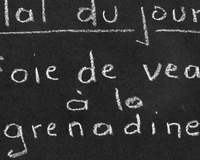 lal du jour
foie de vea
à la
grenadine